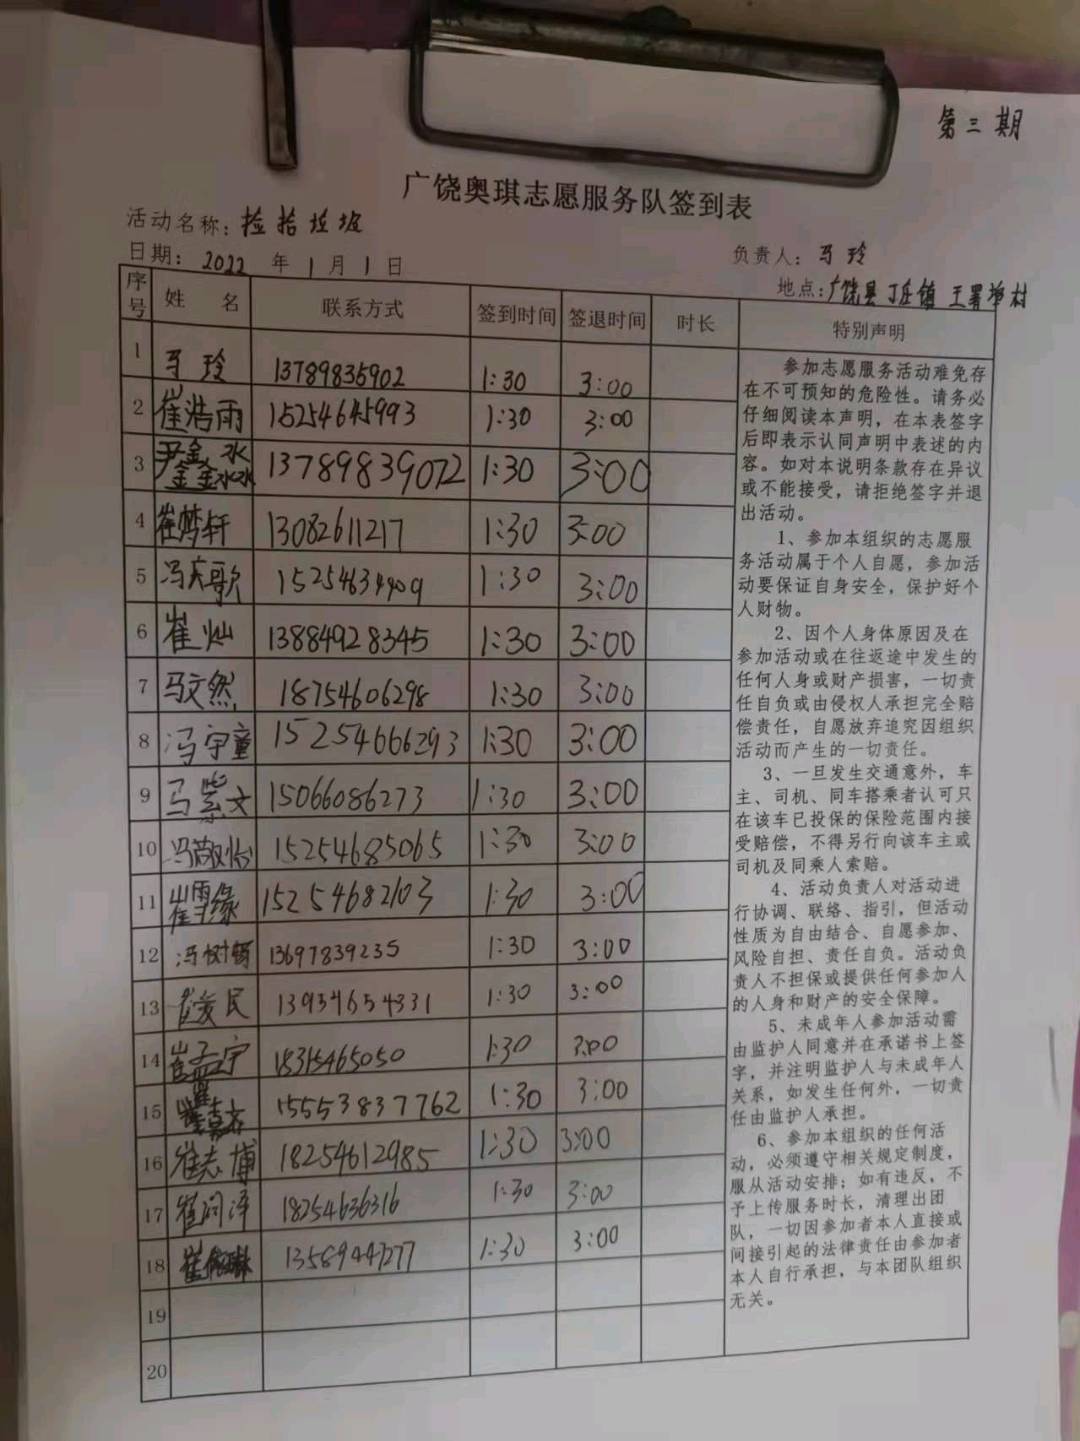 第三期
广饶奥琪志愿服务队签到表
活动名称：捡拾垃圾
日期：2022年1月1日 负责人：马玲
地点：广饶县丁庄镇王署埠村
序号 姓名 联系方式 签到时间 签退时间 时长 特别声明
1 马玲 13789835902 1:30 3:00
2 崔浩雨 15254645993 1:30 3:00
3 尹金水 13789839072 1:30 3:00
4 崔梦轩 13082611217 1:30 3:00
5 冯庆歌 15254634909 1:30 3:00
6 崔灿 13884928345 1:30 3:00
7 马文然 18754606298 1:30 3:00
8 冯宇童 15254666293 1:30 3:00
9 马紫文 15066086273 1:30 3:00
10 冯 15254685065 1:30 3:00
11 崔雪缘 15254682103 1:30 3:00
12 冯树 13697839235 1:30 3:00
13 崔爱民 13934654331 1:30 3:00
14 崔孟宇 18315465050 1:30 3:00
15 15553837762 1:30 3:00
16 崔志博 18254612985 1:30 3:00
17 崔问泽 18254636316 1:30 3:00
18 崔 1:30 3:00
19
20
参加志愿服务活动难免存
在不可预知的危险性。请务必
仔细阅读本声明，在本表签字
后即表示认同声明中表述的内
容。如对本说明条款存在异议
或不能接受，请拒绝签字并退
出活动。
1、参加本组织的志愿服
务活动属于个人自愿，参加活
动要保证自身安全，保护好个
人财物。
2、因个人身体原因及在
参加活动或在往返途中发生的
任何人身或财产损害，一切责
任自负或由侵权人承担完全赔
偿责任，自愿放弃追究因组织
活动而产生的一切责任。
3、一旦发生交通意外，车
主、司机、同车搭乘者认可只
在该车已投保的保险范围内接
受赔偿，不得另行向该车主或
司机及同乘人索赔。
4、活动负责人对活动进
行协调、联络、指引，但活动
性质为自由结合、自愿参加、
风险自担、责任自负。活动负
责人不担保或提供任何参加人
的人身和财产的安全保障。
5、未成年人参加活动需
由监护人同意并在承诺书上签
字，并注明监护人与未成年人
关系，如发生任何外，一切责
任由监护人承担。
6、参加本组织的任何活
动，必须遵守相关规定制度，
服从活动安排；如有违反，不
予上传服务时长，清理出团
队，一切因参加者本人直接或
间接引起的法律责任由参加者
本人自行承担，与本团队组织
无关。